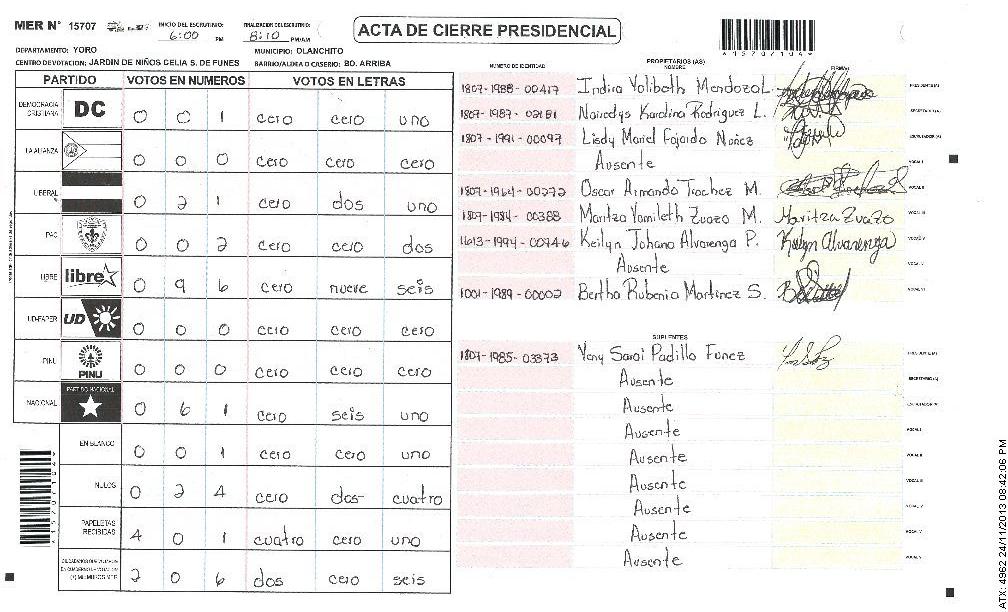 MER N° 15707 INICIO DEL ESCRUTINIO: 6:00 PM FINALIZACION DEL ESCRUTINIO: 8:10 PM/AM
ACTA DE CIERRE PRESIDENCIAL
DEPARTAMENTO: YORO MUNICIPIO: OLANCHITO
CENTRO DE VOTACION: JARDIN DE NIÑOS CELIA S. DE FUNES BARRIO/ALDEA O CASERIO: BO. ARRIBA
PARTIDO VOTOS EN NUMEROS VOTOS EN LETRAS
DEMOCRACIA CRISTIANA DC 0 0 1 cero cero uno
LA ALIANZA 0 0 0 cero cero cero
LIBERAL 0 2 1 cero dos uno
PAC 0 0 2 cero cero dos
LIBRE libre 0 9 6 cero nueve seis
UD-FAPER UD 0 0 0 cero cero cero
PINU PINU 0 0 0 cero cero cero
NACIONAL PARTIDO NACIONAL 0 6 1 cero seis uno
EN BLANCO 0 0 1 cero cero uno
NULOS 0 2 4 cero dos cuatro
PAPELETAS RECIBIDAS 4 0 1 cuatro cero uno
(+) MIEMBROS MER 2 0 6 dos cero seis
NUMERO DE IDENTIDAD PROPIETARIOS (AS) NOMBRE FIRMA(s)
1807-1988-00417 Indira Yolibeth Mendoza L. PRESIDENTE (A)
1807-1987-02151 Karolina Rodriguez L. SECRETARIO (A)
1807-1991-00097 Lisdy Mariel Fajardo Nuñez ESCRUTADOR (A)
Ausente VOCAL I
1807-1964-00272 Oscar Armando Trochez M. VOCAL II
1807-1984-00388 Maritza Yamileth Zuazo M. Maritza Zuazo VOCAL III
1613-1994-00746 Keilyn Johana Alvarenga P. Keilyn Alvarenga VOCAL IV
Ausente VOCAL V
1001-1989-00002 Bertha Rubenia Martinez S. VOCAL VI
SUPLENTES
1807-1985-03373 Yeny Sarai Padilla Funez PRESIDENTE (A)
Ausente SECRETARIO (A)
Ausente ESCRUTADOR (A)
Ausente VOCAL I
Ausente VOCAL II
Ausente VOCAL III
Ausente VOCAL IV
Ausente VOCAL V
Ausente
ATX: 4962 24/11/2013 08:42:06 PM